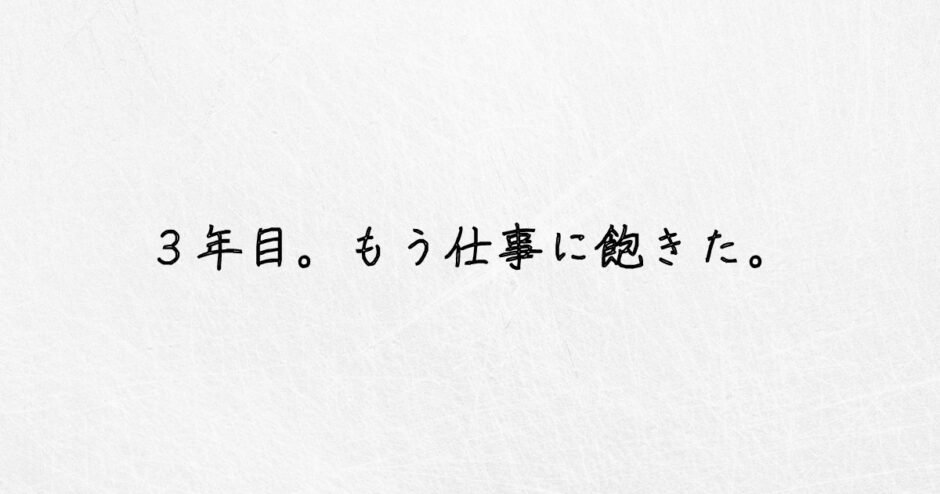 ３年目。もう仕事に飽きた。